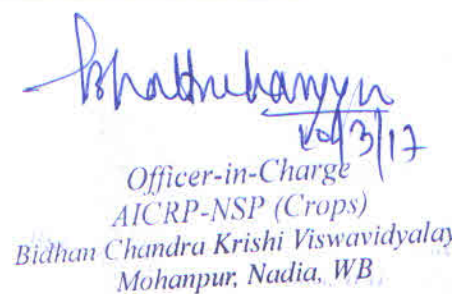 Bhattacharyya
Officer-in-Charge
AICRP-NSP (Crops)
Bidhan Chandra Krishi Viswavidyalay
Mohanpur, Nadia, WB